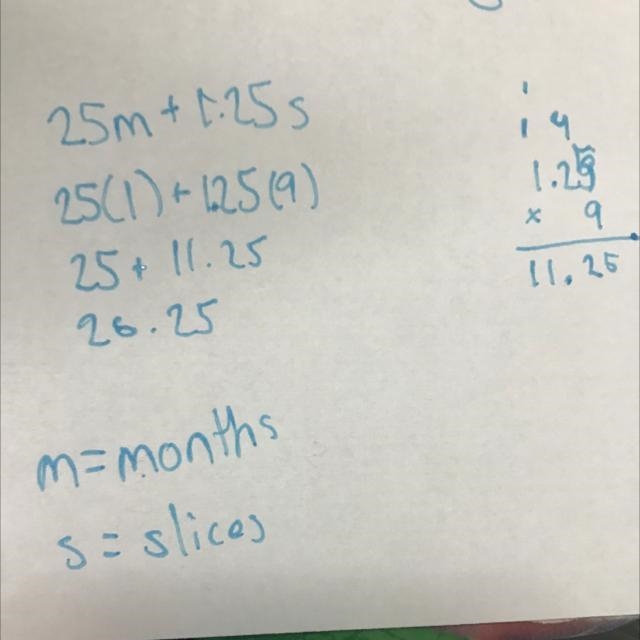 25m + 1.25s
25(1) + 1.25(9)
25 + 11.25
26.25
m = months
s = slices
1 4
1.25
x 9
11.25